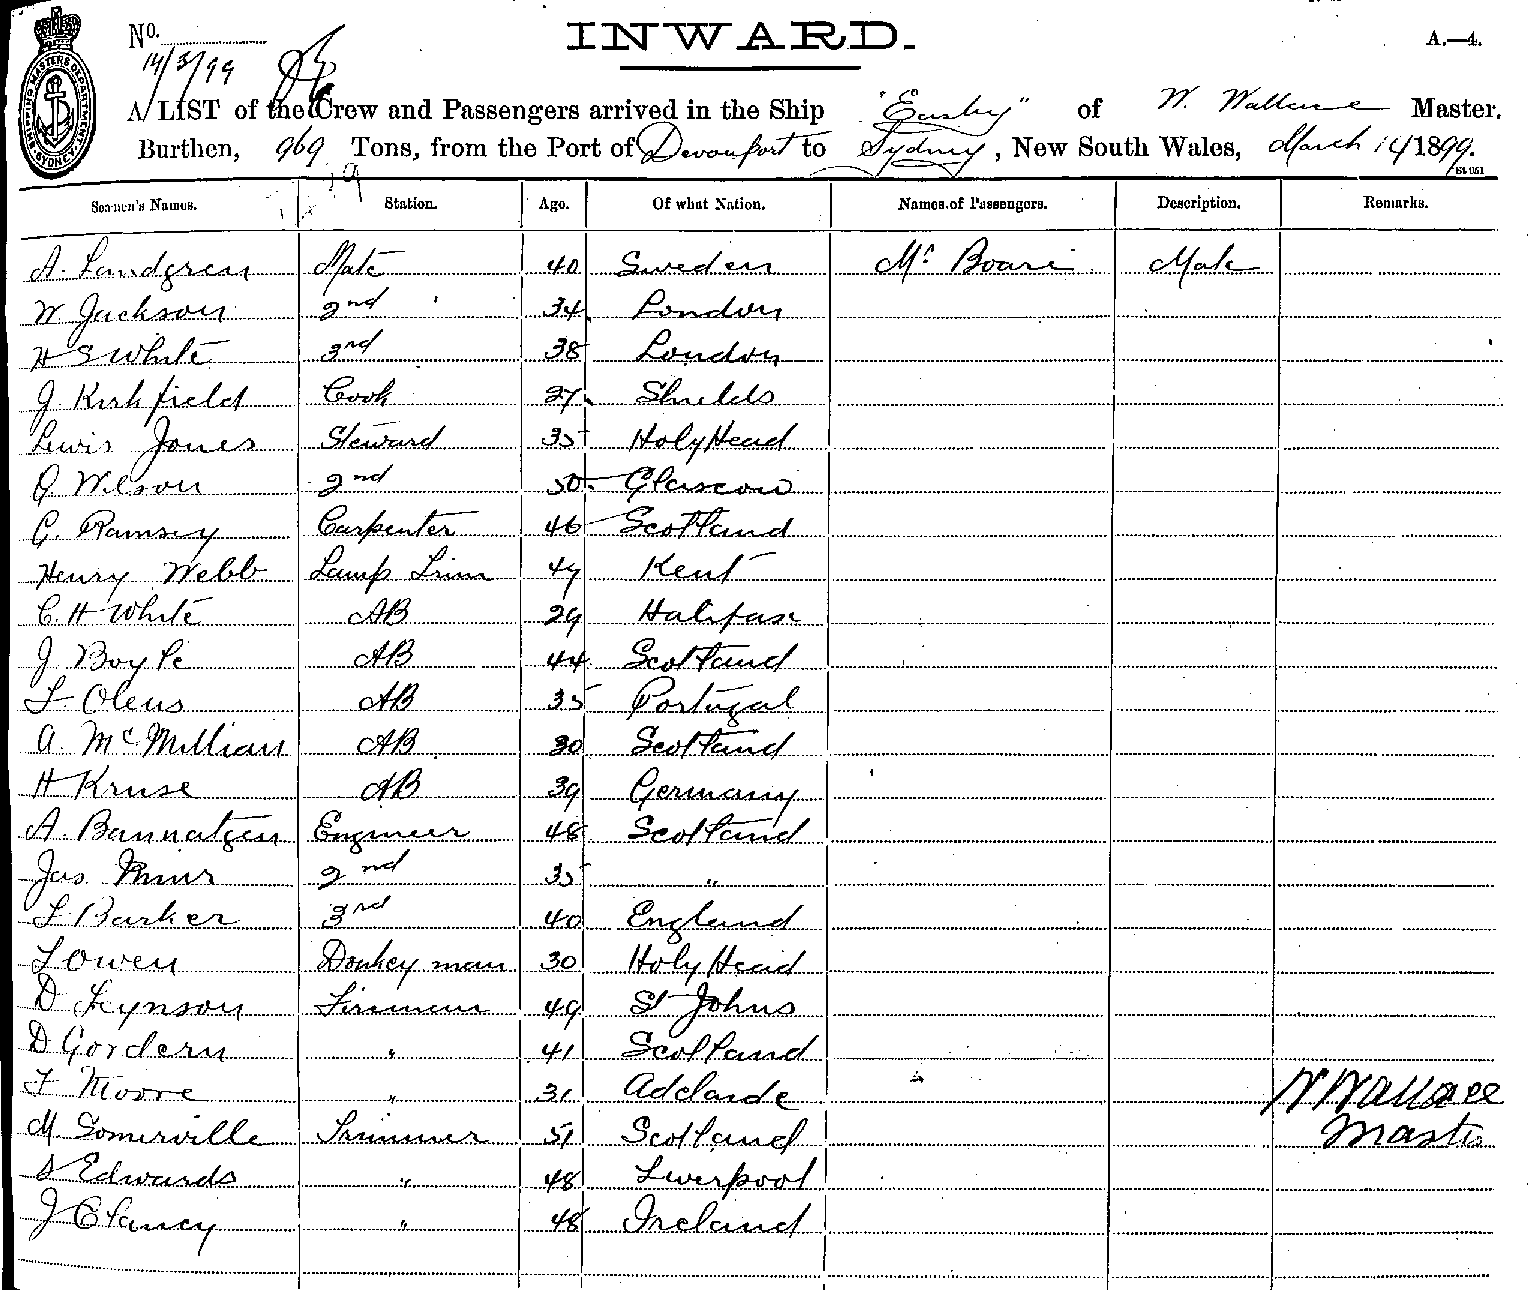 INWARD.
No.
14/3/99
A.—4.
A LIST of the Crew and Passengers arrived in the Ship "Easby" of W. Wallace Master.
Burthen, 969 Tons, from the Port of Devonport to Sydney, New South Wales, March 14/1899.
SHIPPING MASTERS DEPARTMENT SYDNEY
Seamen's Names. Station. Age. Of what Nation. Names of Passengers. Description. Remarks.
A. Lundgren Mate 40 Sweden Mr Boare Male
W Jackson 2nd " 34 London
H S White 3rd 38 London
J Kirkfield Cook 27 Shields
Lewis Jones Steward 35 Holy Head
Q Wilson 2nd 50 Glascow
G. Ramsey Carpenter 46 Scotland
Henry Webb Lamp Trim 47 Kent
C. H White AB 29 Halifax
J Boyle AB 44 Scotland
L Olens AB 35 Portugal
A. McMillian AB 30 Scotland
H Kruse AB 39 Germany
A. Bannatyen Engineer 48 Scotland
Jas Muir 2nd 35 "
L Barker 3rd 40 England
L Owen Donkey man 30 Holy Head
D Feynson Fireman 49 St Johns
D Gordern " 41 Scotland
F Moore " 31 Adelaide
M Somerville Trimmer 51 Scotland
S Edwards " 48 Liverpool
J Clancy " 48 Ireland
W Wallace
Master